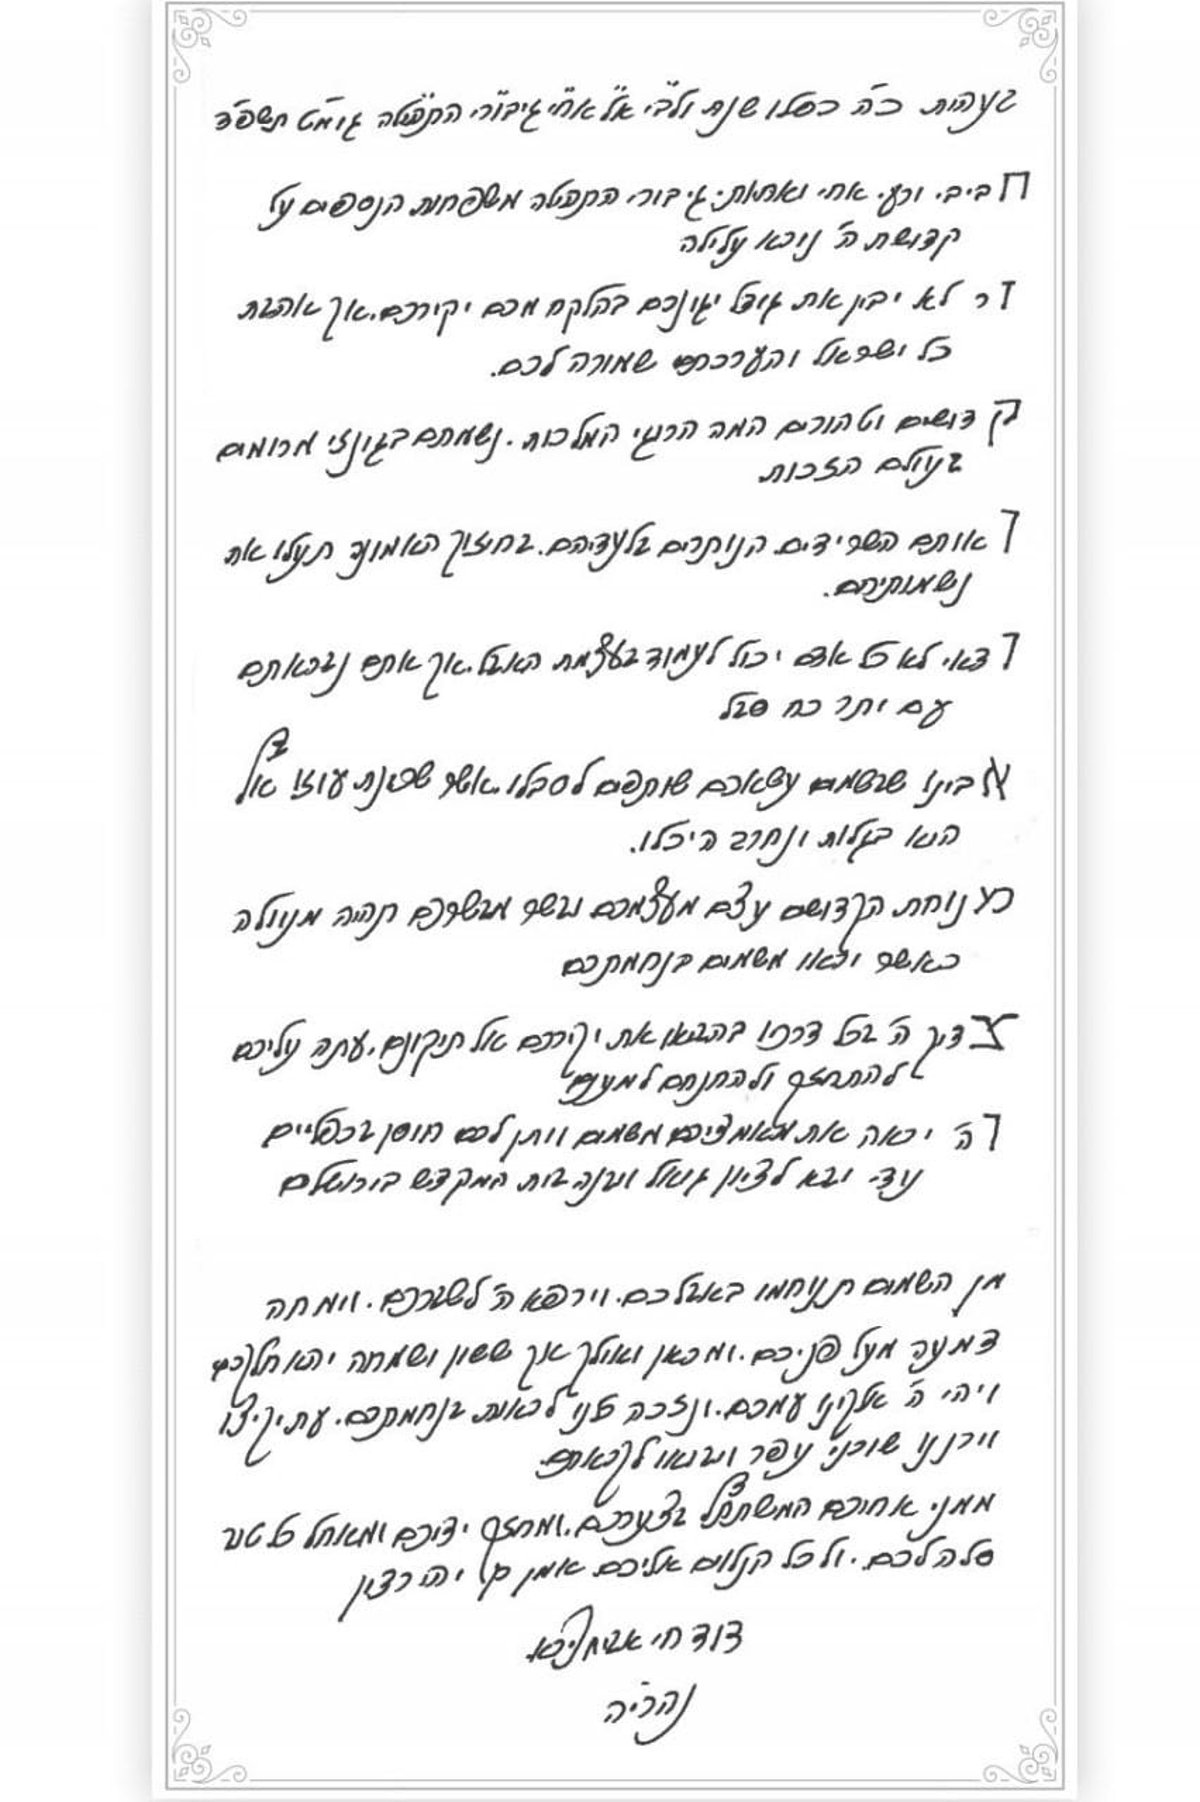 בעהית כ״ה כסלו שנת ולבי אל אחי גיבורי התהילה
חביבי ורעי אחי ואחיותי גיבורי התהילה משפחות הנספים על
קדושת ה׳ נורא עלילה
זר לא יבין את גודל יגונכם בהלקח מכם יקירכם. אך אהבת
כל ישראל והערכתם שמורה לכם.
קדושים וטהורים המה הרוגי המלכות. נשמתם בגונזי מרומים
בעולם הזכות
ואותם השרידים הנותרים בלעדיהם. בחיזוק האמונה תעלו את
נשמותיהם.
ודאי לא כל אדם יכול לעמוד בעצמת האבל. אך אתם נבראתם
עם יתר כח סבל
אבינו שבשמים עשאכם שותפים לסבלו. אשר שכינת עוזו
הוא בגלות ונחרב היכלו.
נוחת הקדושים עצם מעצמכם ובשר מבשרכם תהיה מנוולה
כאשר יראו משמים בנחמתכם
צדיק ה׳ בכל דרכיו בהביאו את יקירכם אל תיקונם. עתה עליכם
להתחזק ולהתנחם למענם
וה׳ יראה את מאמציכם משמים ויתן לכם חוסן בכפליים
ועדי יבא לציון גואל ויבנה בית המקדש בירושלים
מן השמים תנוחמו באבלכם. וירפא ה׳ לשברכם. וימחה
דמעה מעל פניכם. ומכאן ואילך אך ששון ושמחה יהא חלקכם
ויהי ה׳ אלקינו עמכם. ונזכה כולנו לראות בנחמתכם. עת יקיצו
וירננו שוכני עפר ויבואו לקראתם.
ממני אחיכם המשתתף בצערכם. ומחזק ידיכם ומאחל כל טוב
סלה לכם. ולכל הנלוים אליכם אמן כן יהי רצון
דוד חי אביחצירא
נהריה